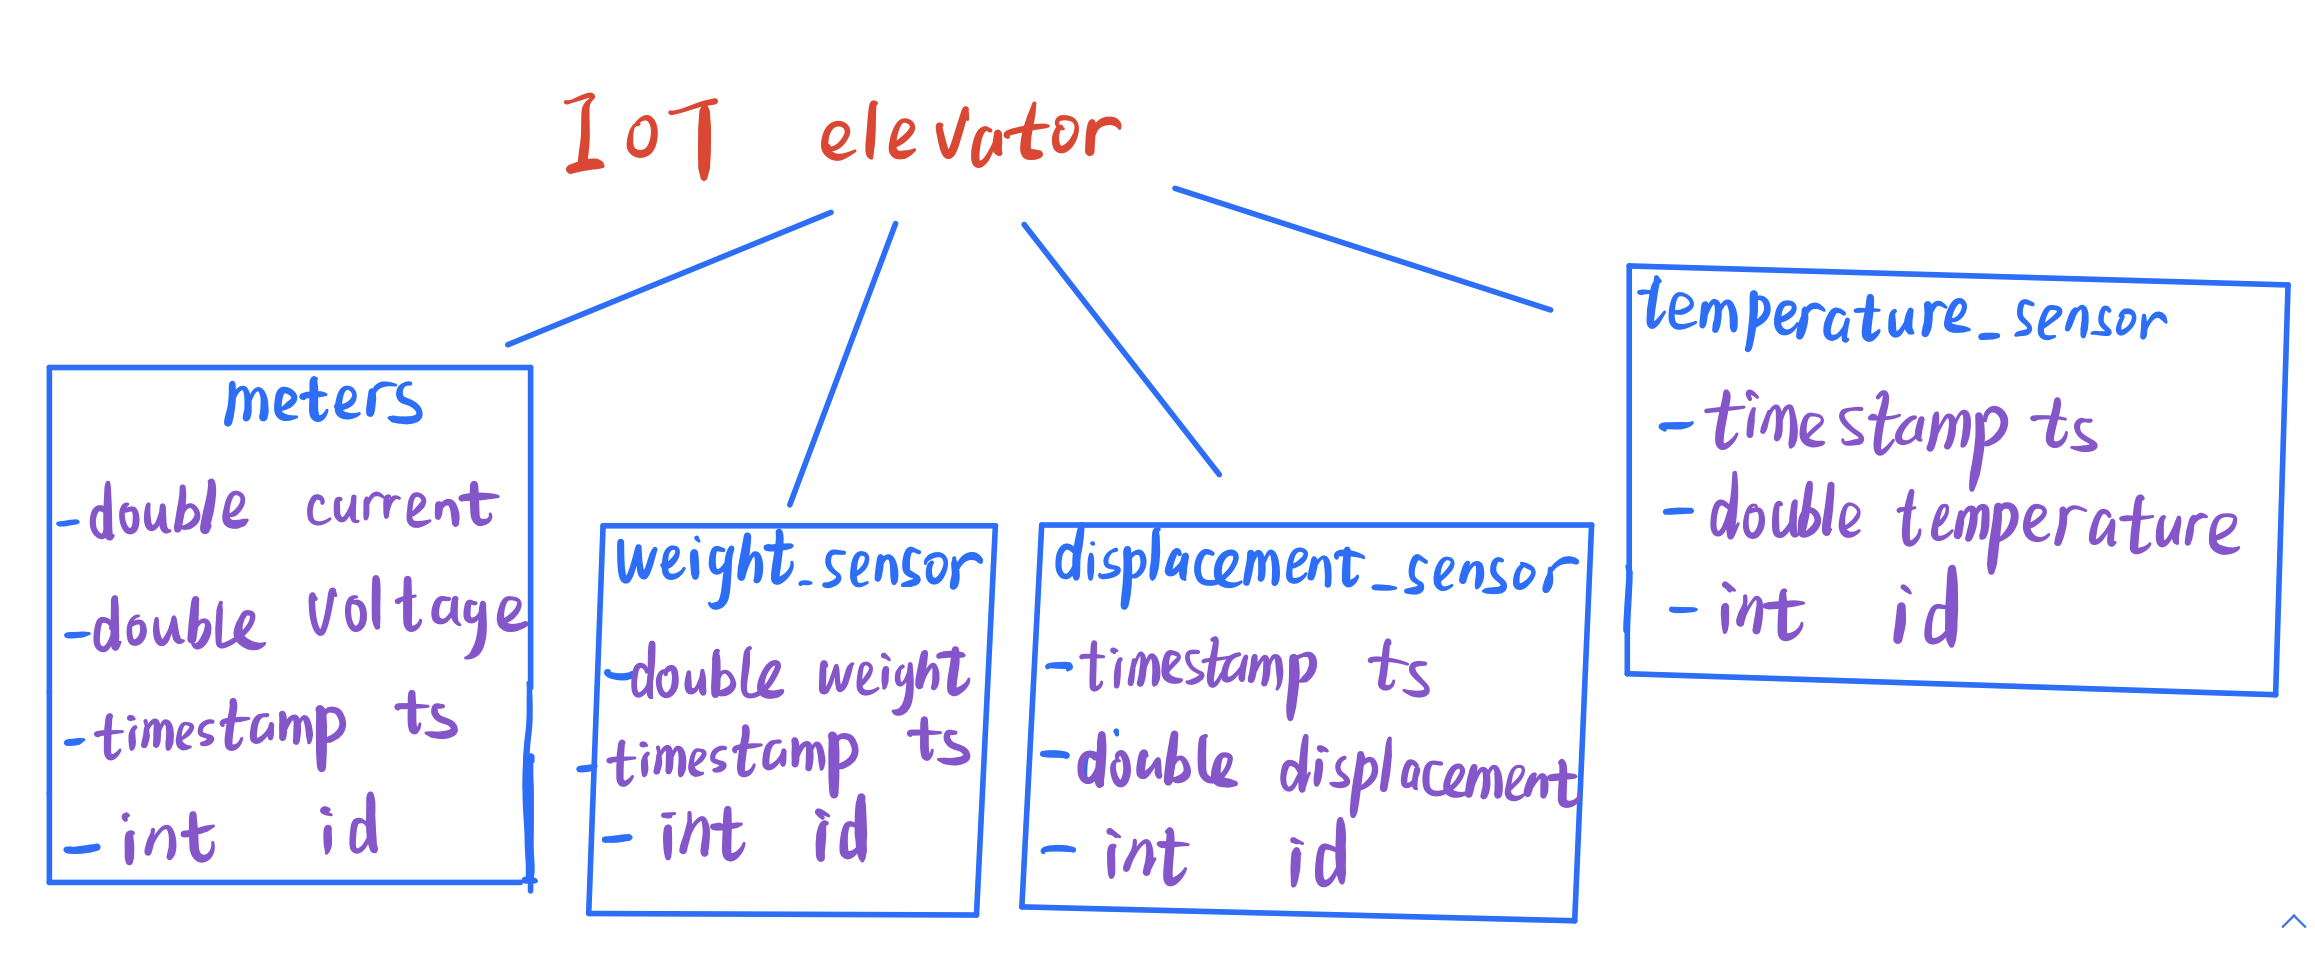 IoT elevator
meters
- double current
- double voltage
- timestamp ts
- int id
weight_sensor
- double weight
- timestamp ts
- int id
displacement_sensor
- timestamp ts
- double displacement
- int id
temperature_sensor
- timestamp ts
- double temperature
- int id